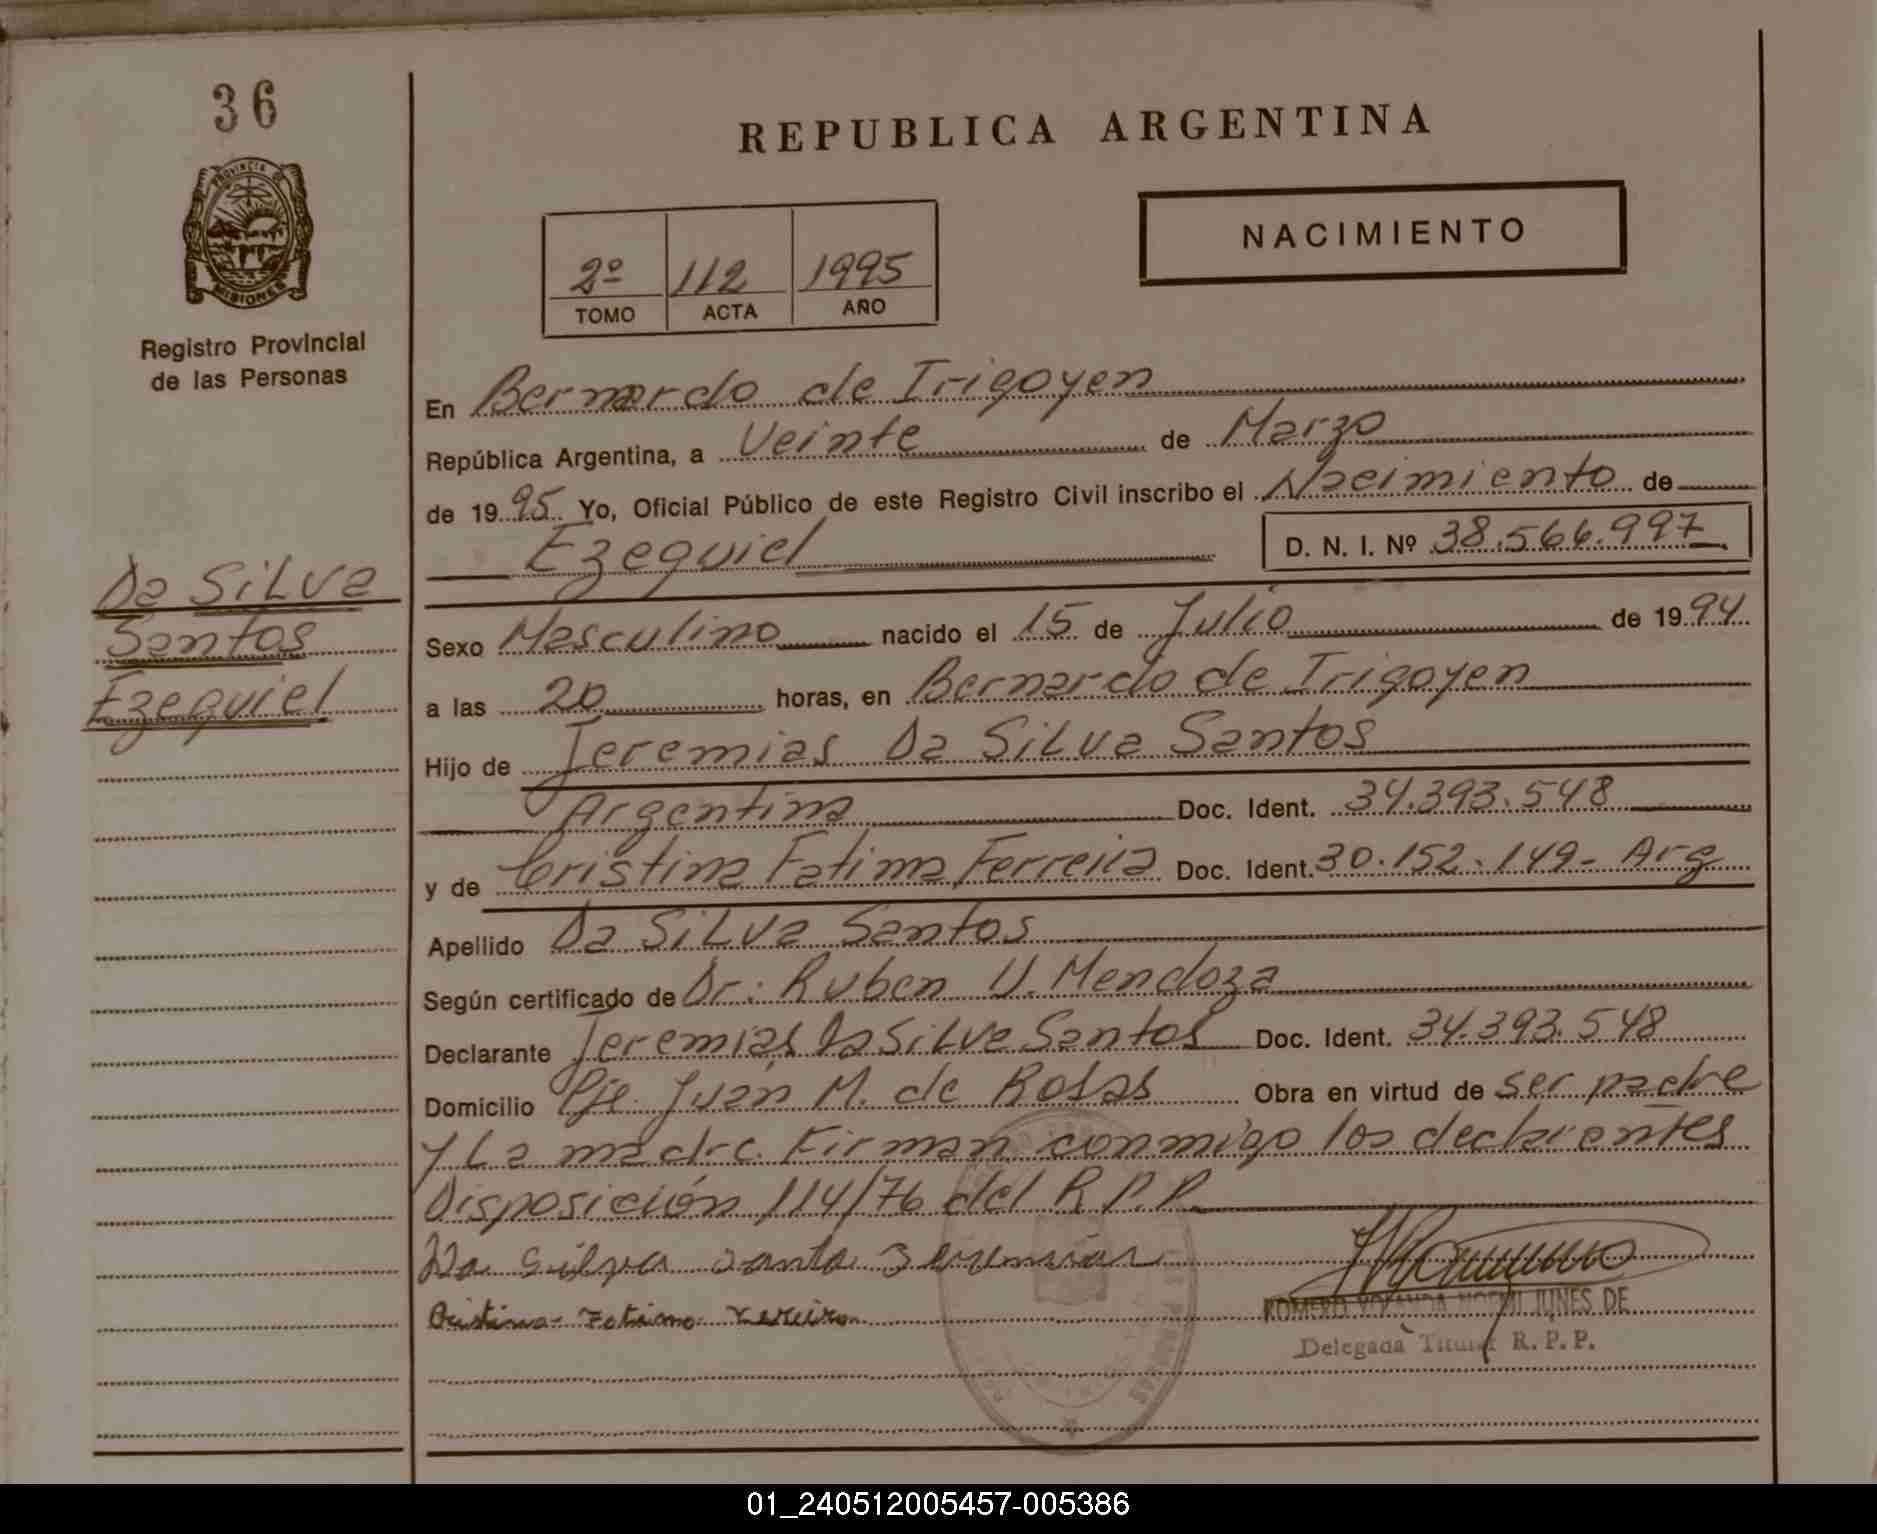 36
REPUBLICA ARGENTINA
PROVINCIA DE
MISIONES
Registro Provincial
de las Personas
NACIMIENTO
2º 112 1995
TOMO ACTA AÑO
En Bernardo de Irigoyen
República Argentina, a Veinte de Marzo
de 1995 Yo, Oficial Público de este Registro Civil inscribo el Nacimiento de
Ezequiel D. N. I. Nº 38.566.997
Da Silva
Santos
Ezequiel
Sexo Masculino nacido el 15 de Julio de 1994
a las 20 horas, en Bernardo de Irigoyen
Hijo de Jeremias Da Silva Santos
Argentina Doc. Ident. 34.393.548
y de Cristina Fatima Ferreira Doc. Ident. 30.152.149- Arg
Apellido Da Silva Santos
Según certificado de Dr. Ruben V. Mendoza
Declarante Jeremias Da Silva Santos Doc. Ident. 34.393.548
Domicilio Pje. Juan M. de Rosas Obra en virtud de ser padre
y La madre. Firman conmigo los declarantes
Disposición 114/76 del R.P.P.
Da Silva Santo Jeremias
Cristina Fatima
ROMERO YOLANDA NOEMI JUNES DE
Delegada Titular R. P. P.
01_240512005457-005386